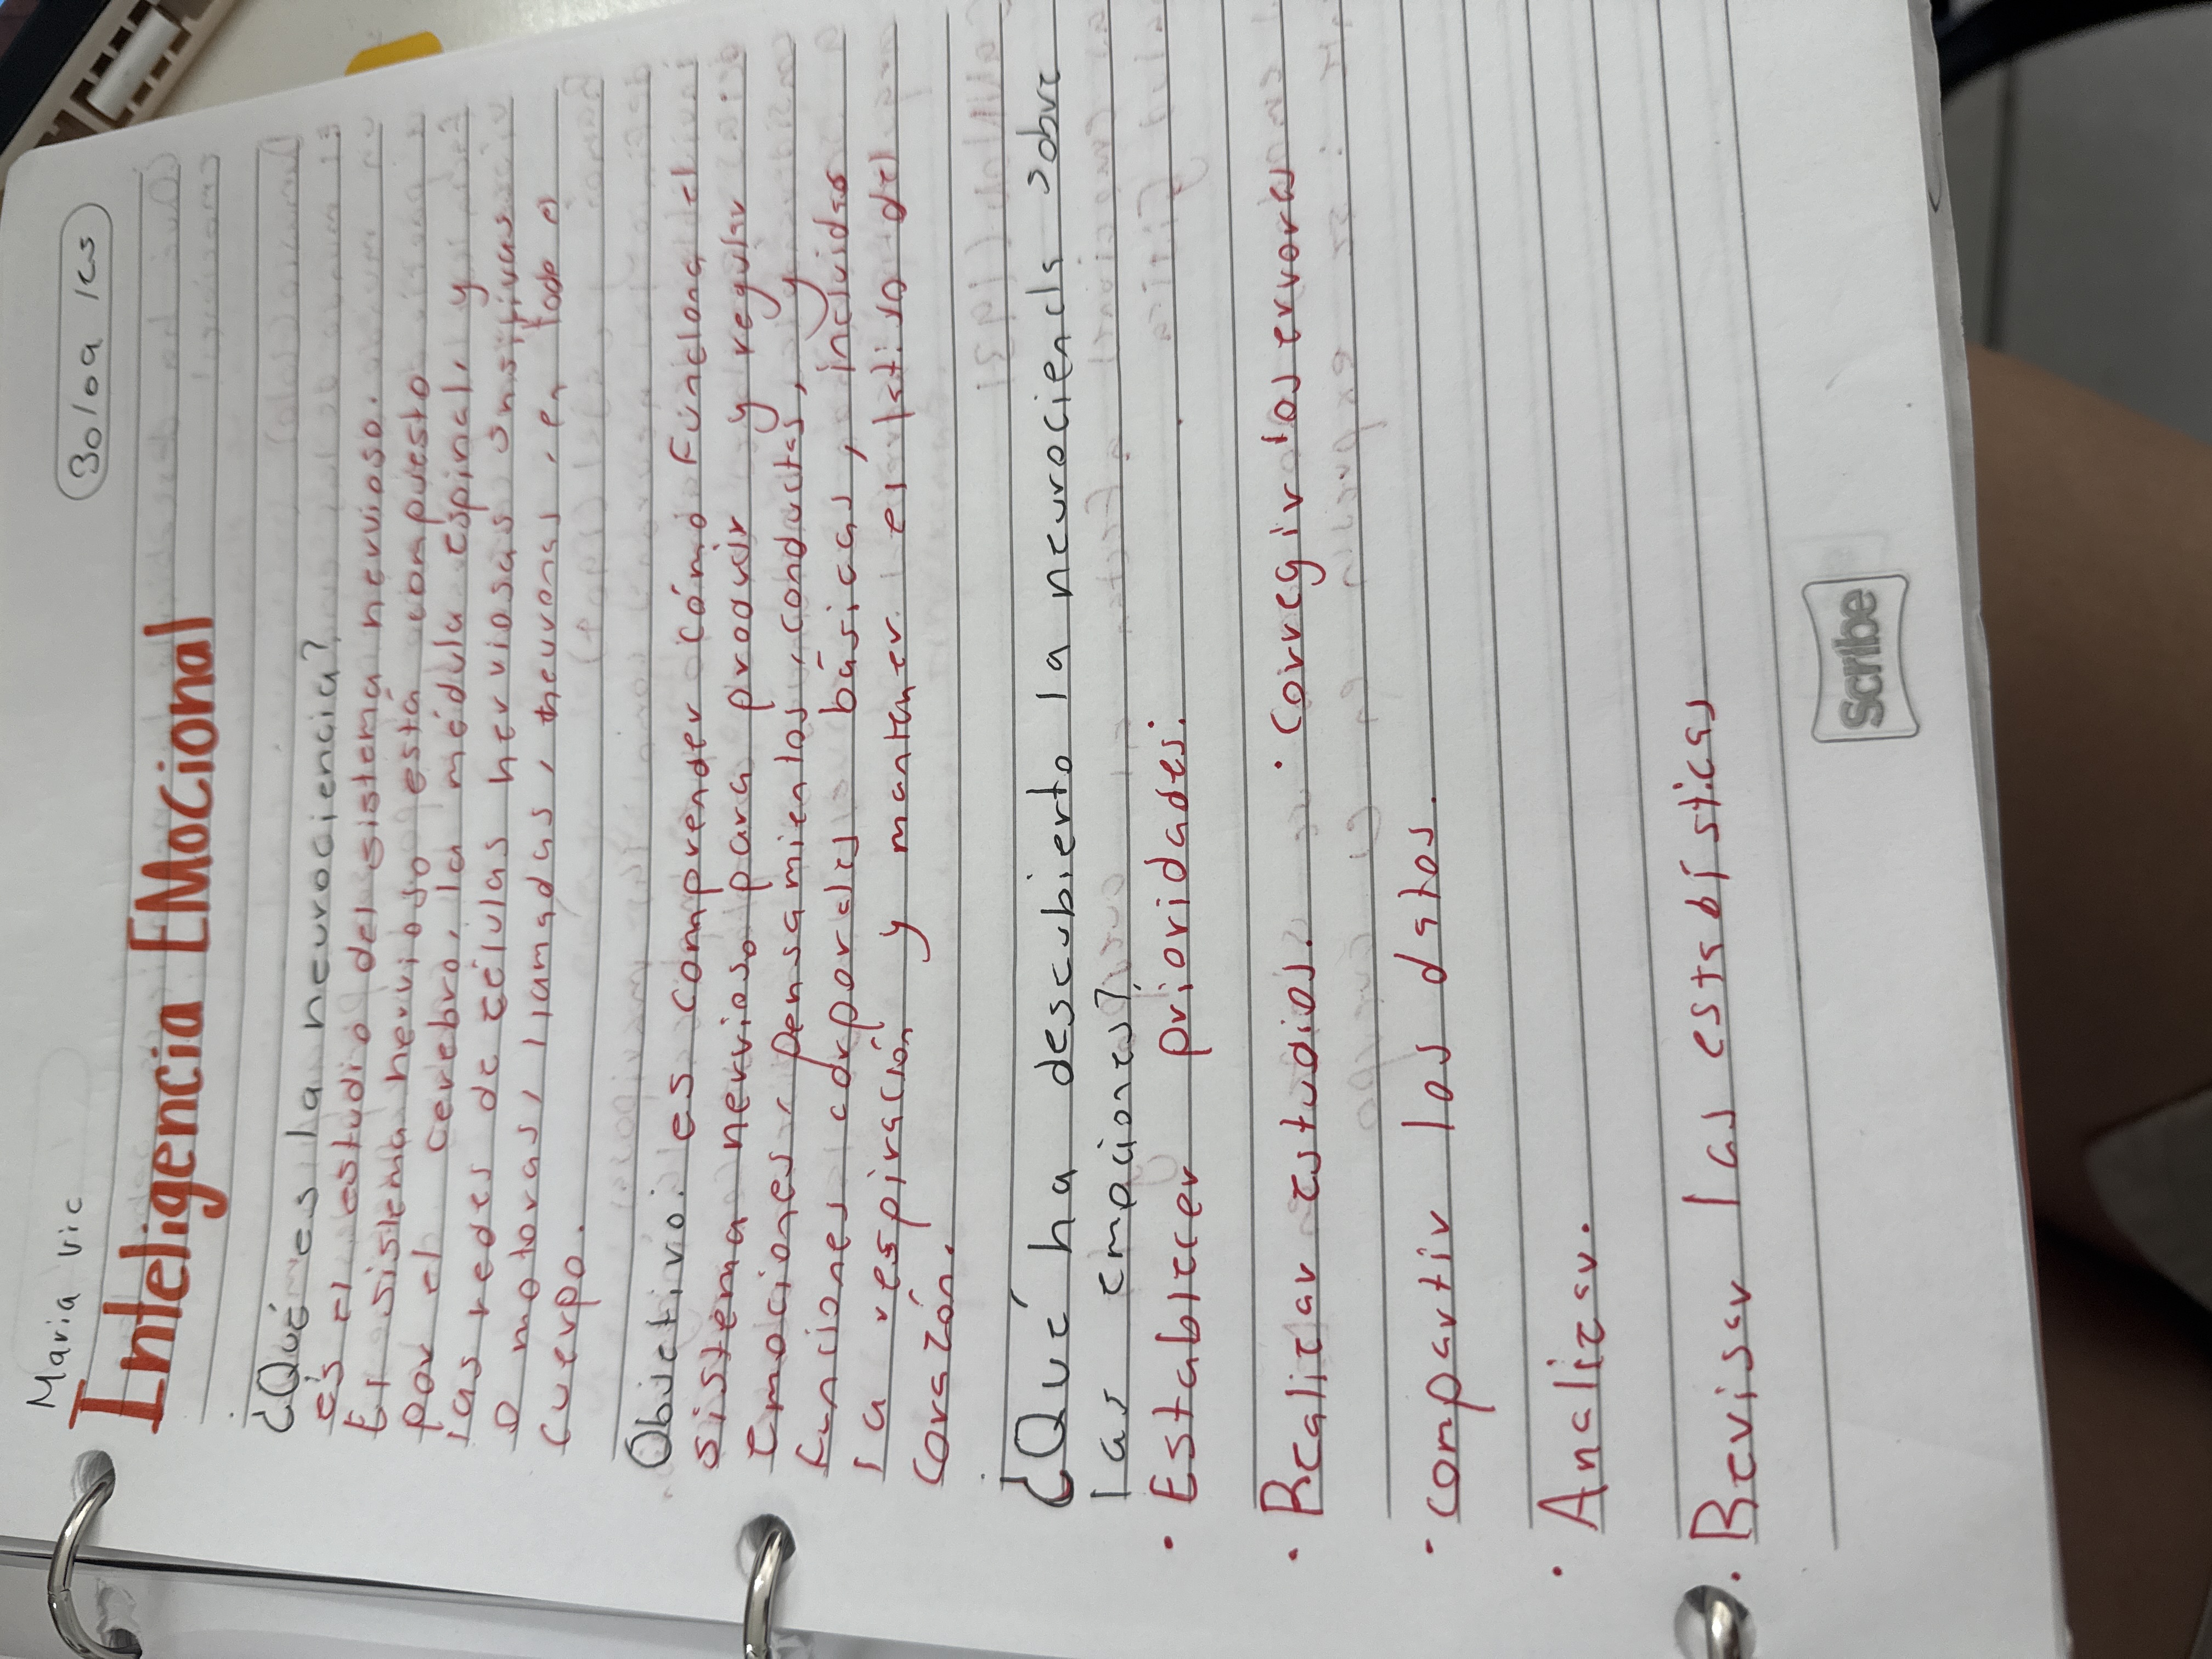 Maria Vic
Inteligencia EMocional
¿Qué es la neurociencia?
es el estudio del sistema nervioso.
El sistema nervioso está compuesto
por el cerebro, la médula espinal, y
las redes de células nerviosas
o motoras, llamadas, neuronas, en todo el
cuerpo.
Objetivo: es comprender cómo funciona el
sistema nervioso para producir y regular
Emociones, pensamientos, conductas, y
funciones corporales básicas, incluidas
la respiración y mantener el latido del
corazón.
¿Qué ha descubierto la neurociencia sobre
las emociones?
• Establecer prioridades.
• Realizar estudios. • Corregir los errores
• compartir los datos.
• Analizar.
• Revisar las estadísticas
Scribe